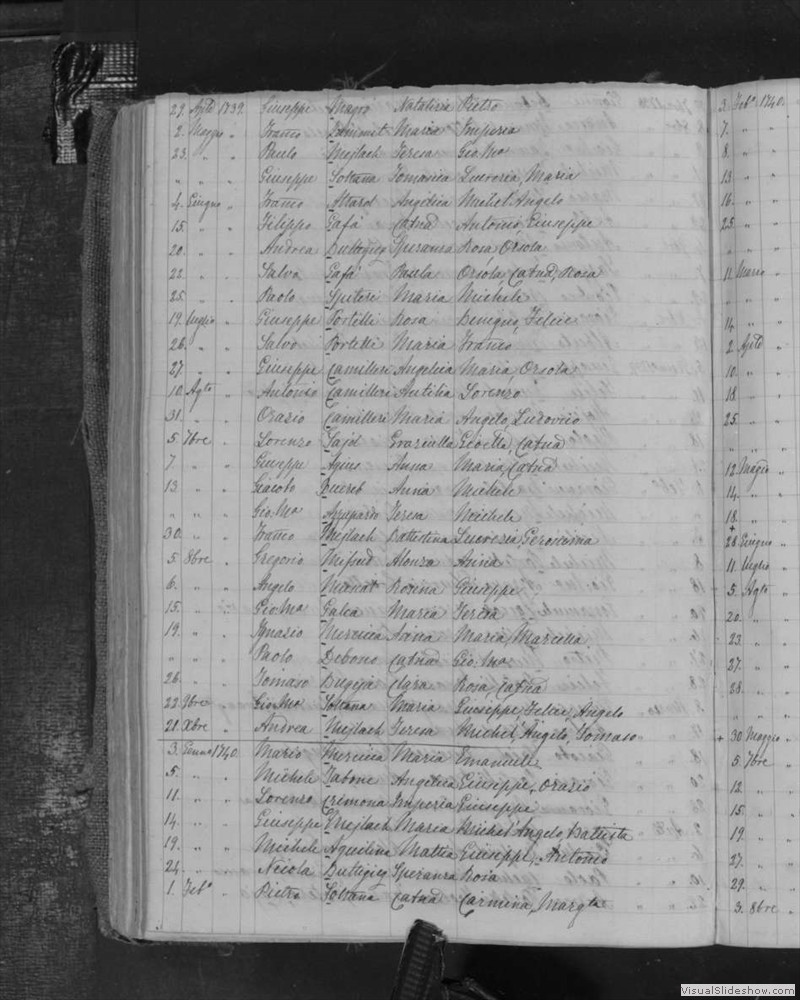 29. Aple 1739. Giuseppe Magro Natalizia Pietro
2. Maggio „ Franco Zammit Maria Imperia
23. „ „ Paulo Mejlach Teresa Gio. Ma
„ „ „ Giuseppe Soltana Tomasica Lucrezia, Maria
4. Giugno „ Franco Attard Angelica Michel'Angelo
15. „ „ Filippo Zafá Catna Antonio, Giuseppe
20. „ „ Andrea Buttigieg Speranza Rosa, Orsola
22. „ „ Salvo Zafá Paula Orsola, Catna, Rosa
25. „ „ Paolo Spiteri Maria Michele
19. Luglio „ Giuseppe Portelli Rosa Benigno, Felice
26. „ „ Salvo Portelli Maria Franco
27. „ „ Giuseppe Camilleri Angelica Maria, Orsola
10. Agto „ Antonio Camilleri Lorenzo
31. „ „ Orazio Camilleri Maria Angelo, Ludovico
5. 7bre „ Lorenzo Sajd Graziulla Catna
7. „ „ Giuseppe Agius Anna Maria, Catna
13. „ „ Giacobo Anna Michele
„ „ „ Gio. Ma Azzupardo Teresa Michele
30. „ „ Franco Mejlach Battistina Lucrezia, Geronima
5. 8bre „ Gregorio Mifsud Alonza Anna
6. „ „ Angelo Rosina Giuseppe
15. „ „ Gio. Ma Galea Maria Teresa
19. „ „ Ignazio Mercieca Anna Maria, Marcella
„ „ „ Paolo Debono Catna Gio. Ma
26. „ „ Tomaso Bugeja Clara Rosa, Catna
22. 9bre „ Gio. Ma Soltana Maria Giuseppe, Felice, Angelo
21. Xbre „ Andrea Mejlach Teresa Michel'Angelo, Tomaso
3. Genno 1740. Mario Mercieca Maria Emanuele
5. „ „ Michele Tabone Angelica Giuseppe, Orazio
11. „ „ Lorenzo Cremona Imperia Giuseppe
14. „ „ Giuseppe Mejlach Maria Michel'Angelo, Battista
19. „ „ Michele Aquilina Mattia Giuseppe, Antonio
24. „ „ Nicola Buttigieg Speranza Rosa
1. Febo „ Pietro Soltana Catna Carmina, Margta
3. Febo 1740.
7. „ „
8. „ „
13 „ „
16. „ „
25. „ „
„ „ „
11. Marzo „
„ „ „
14. „ „
2. Aple „
10. „ „
18. „ „
25. „ „
„ „ „
12. Maggio „
14. „ „
18. „ „
+ 28. Giugno „
11. Luglio „
5. Agto „
20. „ „
23. „ „
27. „ „
28. „ „
„ „ „
+ 30 Maggio „
5. 7bre „
12. „ „
15. „ „
19. „ „
27. „ „
29. „ „
3. 8bre „
VisualSlideshow.com